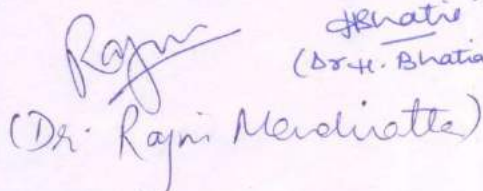 Rajni
HBhatia
(Dr. H. Bhatia
(Dr. Rajni Mendiratta)